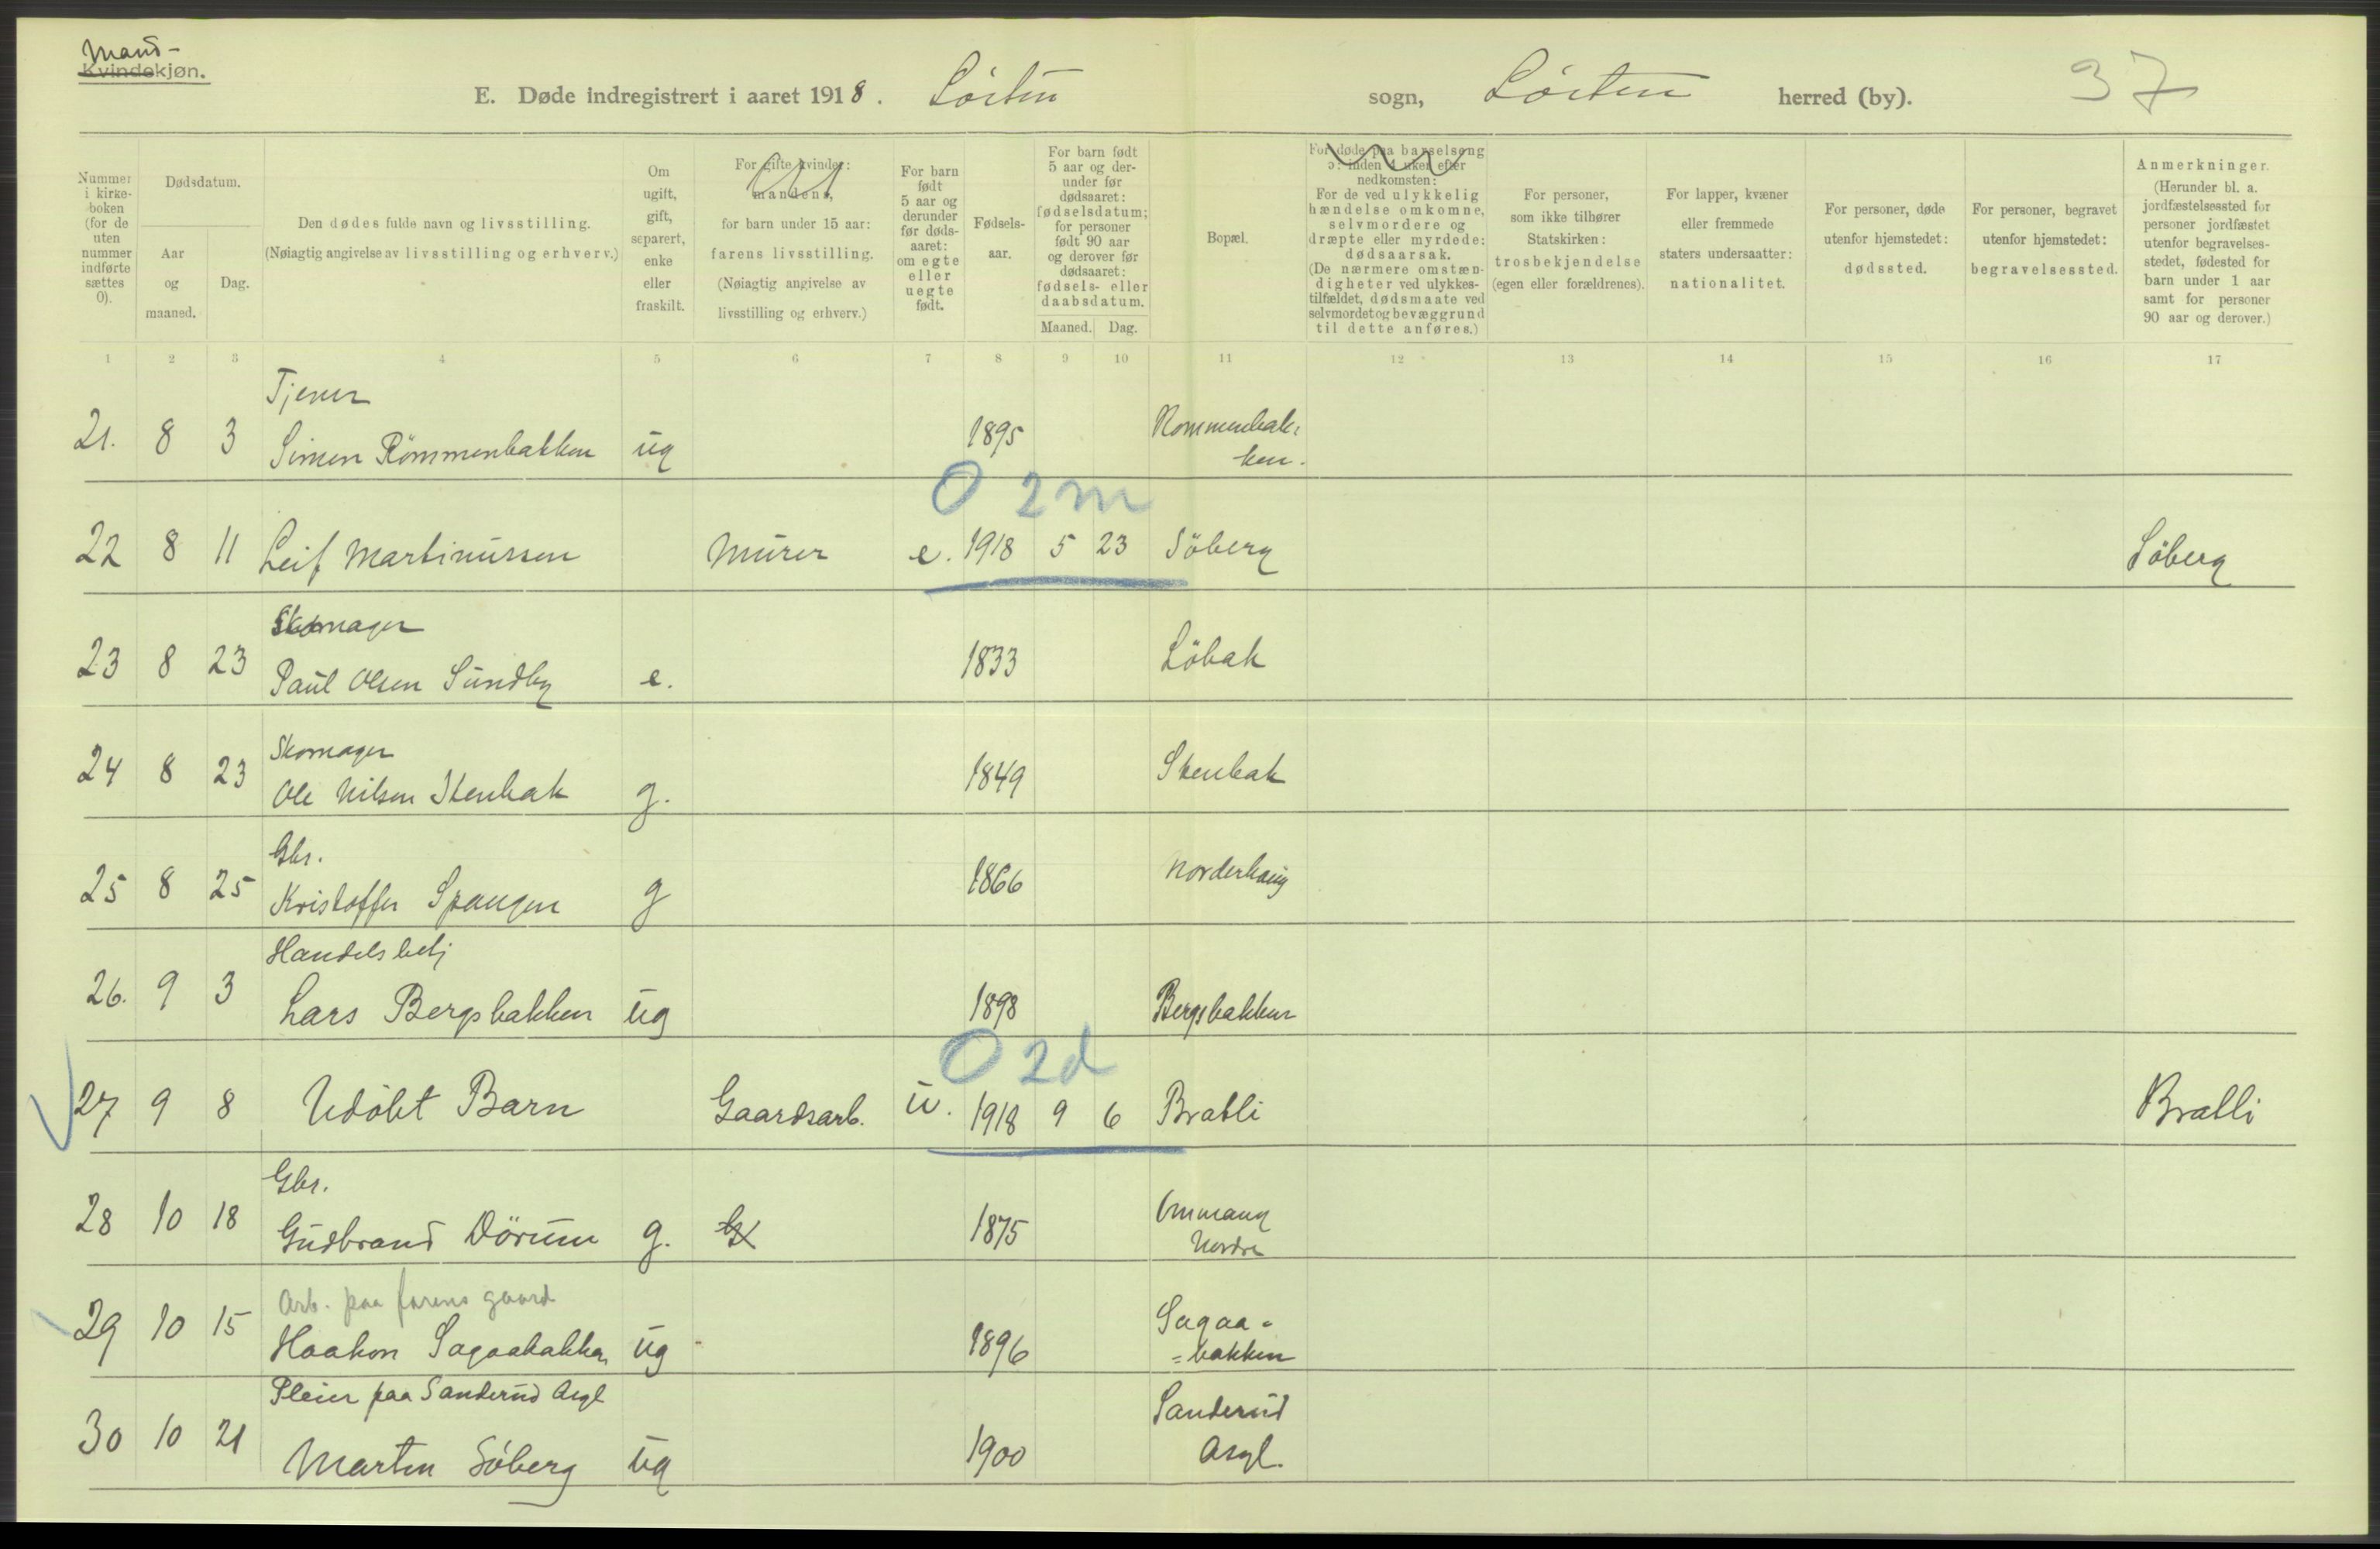 Mand-
Kvindekjøn.
E. Døde indregistrert i aaret 1918. Löiten sogn, Löiten herred (by). 37
Nummer i kirke-boken (for de uten nummer indførte sættes 0).
Dødsdatum.
Aar og maaned.
Dag.
Den dødes fulde navn og livsstilling.
(Nøiagtig angivelse av livsstilling og erhverv.)
Om ugift, gift, separert, enke eller fraskilt.
For gifte kvinder: mandens, for barn under 15 aar: farens livsstilling. (Nøiagtig angivelse av livsstilling og erhverv.)
For barn født 5 aar og derunder før døds-aaret: om egte eller uegte født.
Fødsels-aar.
For barn født 5 aar og der-under før dødsaaret: fødselsdatum; for personer født 90 aar og derover før dødsaaret: fødsels- eller daabsdatum.
Maaned. Dag.
Bopæl.
For døde paa barselseng ɔ: inden 4 uker efter nedkomsten: For de ved ulykkelig hændelse omkomne, selvmordere og dræpte eller myrdede: dødsaarsak. (De nærmere omstæn-digheter ved ulykkes-tilfældet, dødsmaate ved selvmordet og bevæggrund til dette anføres.)
For personer, som ikke tilhører Statskirken: trosbekjendelse (egen eller forældrenes).
For lapper, kvæner eller fremmede staters undersaatter: nationalitet.
For personer, døde utenfor hjemstedet: dødssted.
For personer, begravet utenfor hjemstedet: begravelsessted.
Anmerkninger. (Herunder bl. a. jordfæstelsessted for personer jordfæstet utenfor begravelses-stedet, fødested for barn under 1 aar samt for personer 90 aar og derover.)
1 2 3 4 5 6 7 8 9 10 11 12 13 14 15 16 17
Tjener
21. 8 3 Simen Römmenbakken ug 1895 Rommenbak-
ken.
0 2 m
22 8 11 Leif Martinussen Murer e. 1918 5 23 Söberg Söberg
Skomager
23 8 23 Paul Olsen Sundby e. 1833 Löbak
Skomager
24 8 23 Ole Nilsen Stenbak g. 1849 Stenbak
Gbr.
25 8 25 Kristoffer Spangen g 1866 Norderhaug
Handelsbetj
26. 9 3 Lars Bergsbakken ug 1898 Bergsbakken
0 2 d
27 9 8 Udöbt Barn Gaardsarb. u. 1918 9 6 Bratli Bratli
Gbr.
28 10 18 Gudbrand Dörum g. 1875 Ommang
Nordre
Arb. paa farens gaard
29 10 15 Haakon Sagaabakken ug 1896 Sagaa-
=bakken
Pleier paa Sanderud Asyl
30 10 21 Martin Söberg ug 1900 Sanderud
Asyl.